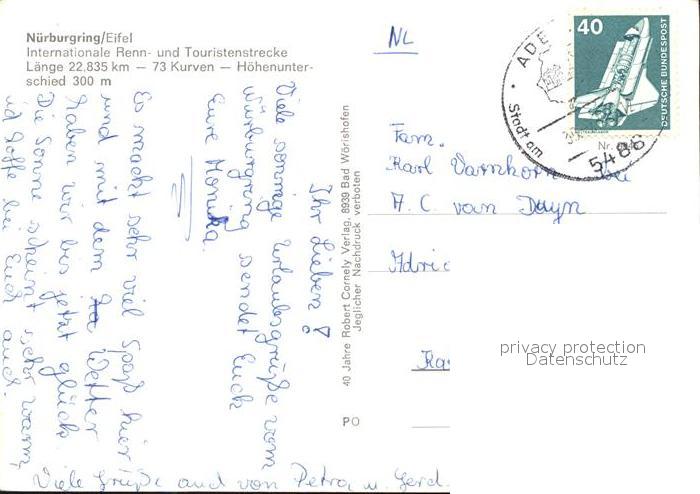 Nürburgring/Eifel
Internationale Renn- und Touristenstrecke
Länge 22,835 km — 73 Kurven — Höhenunter-
schied 300 m
Ihr Lieben!
Viele sonnige Urlaubsgrüße vom
Nürburgring sendet Euch
Eure Monika.
Es macht sehr viel Spaß hier
und mit dem Wetter
haben wir bis jetzt glück.
Die Sonne scheint sehr warm,
ich hoffe bei Euch auch.
Viele Grüße auch von Petra u. Gerd.
40 Jahre Robert Cornely Verlag, 8939 Bad Wörishofen
Jeglicher Nachdruck verboten
PO
NL
40
DEUTSCHE BUNDESPOST
ADE
Stadt am
5488
Nr.
Fam.
Karl Varnhorn bei
A. C. van Duyn
Adri
Ka
privacy protection
Datenschutz